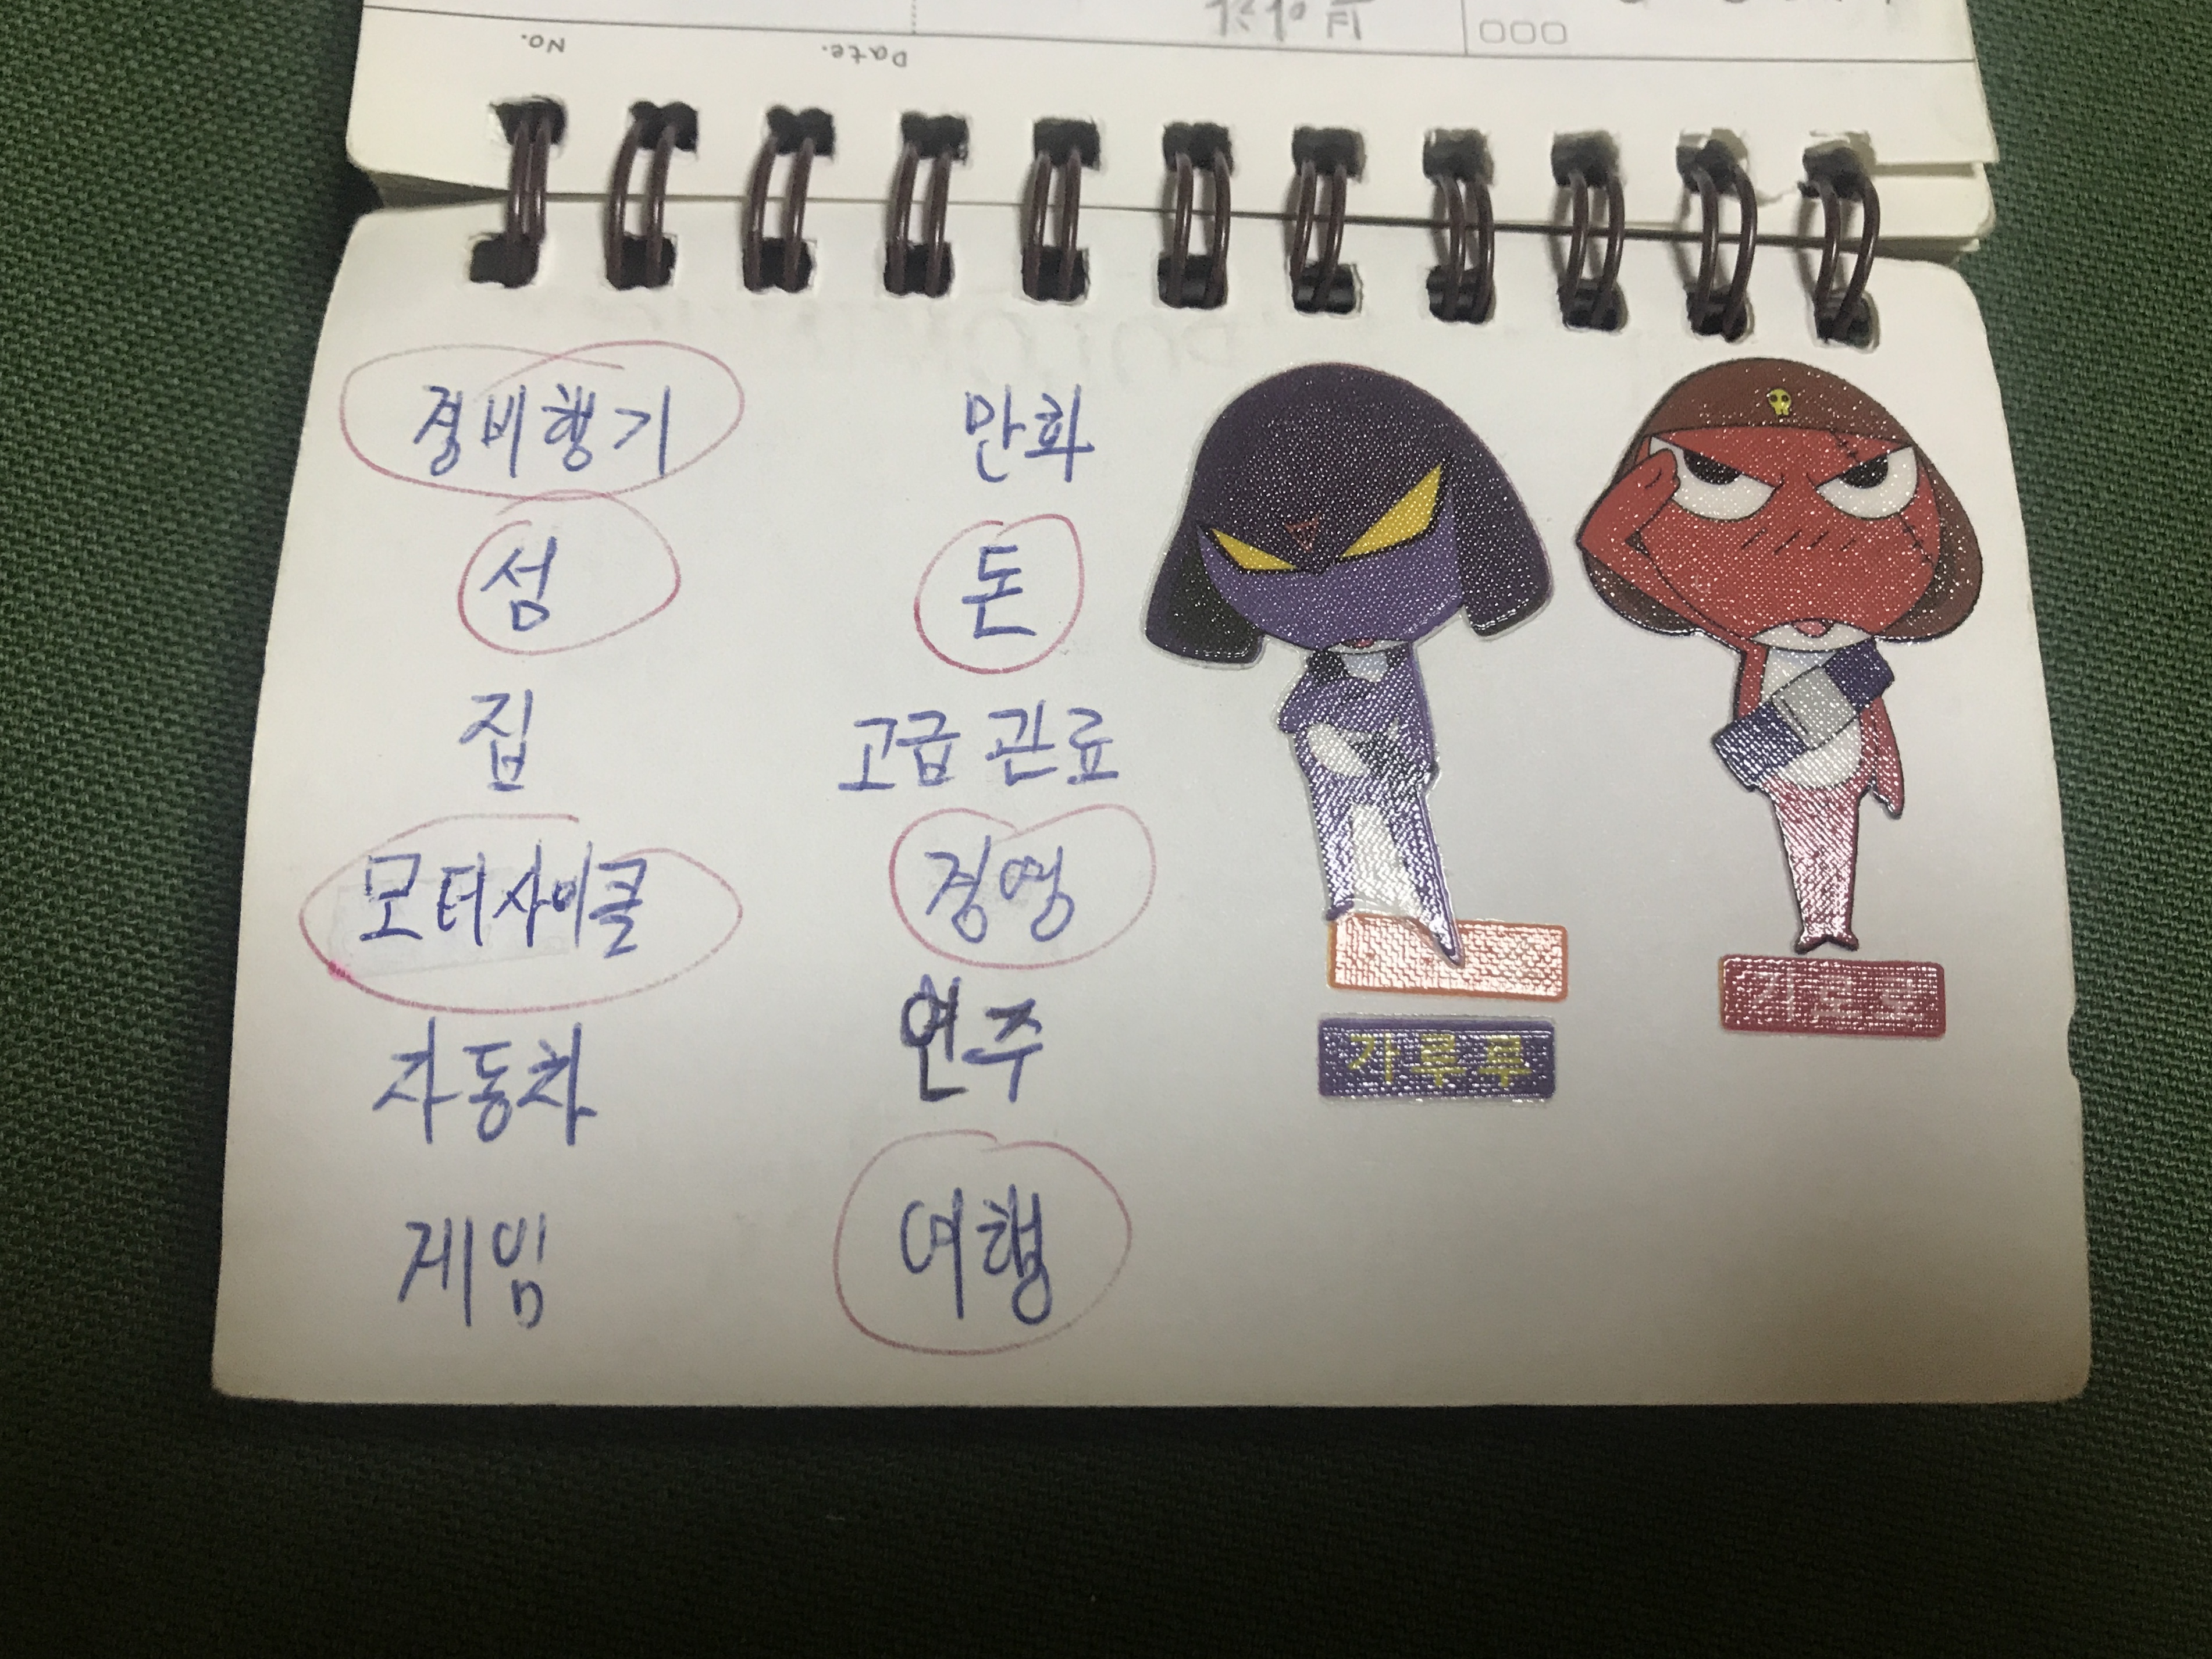 No.
Date.
경비행기
섬
집
모터사이클
자동차
게임
만화
돈
고급 관료
경영
연주
여행
가루루
기로로